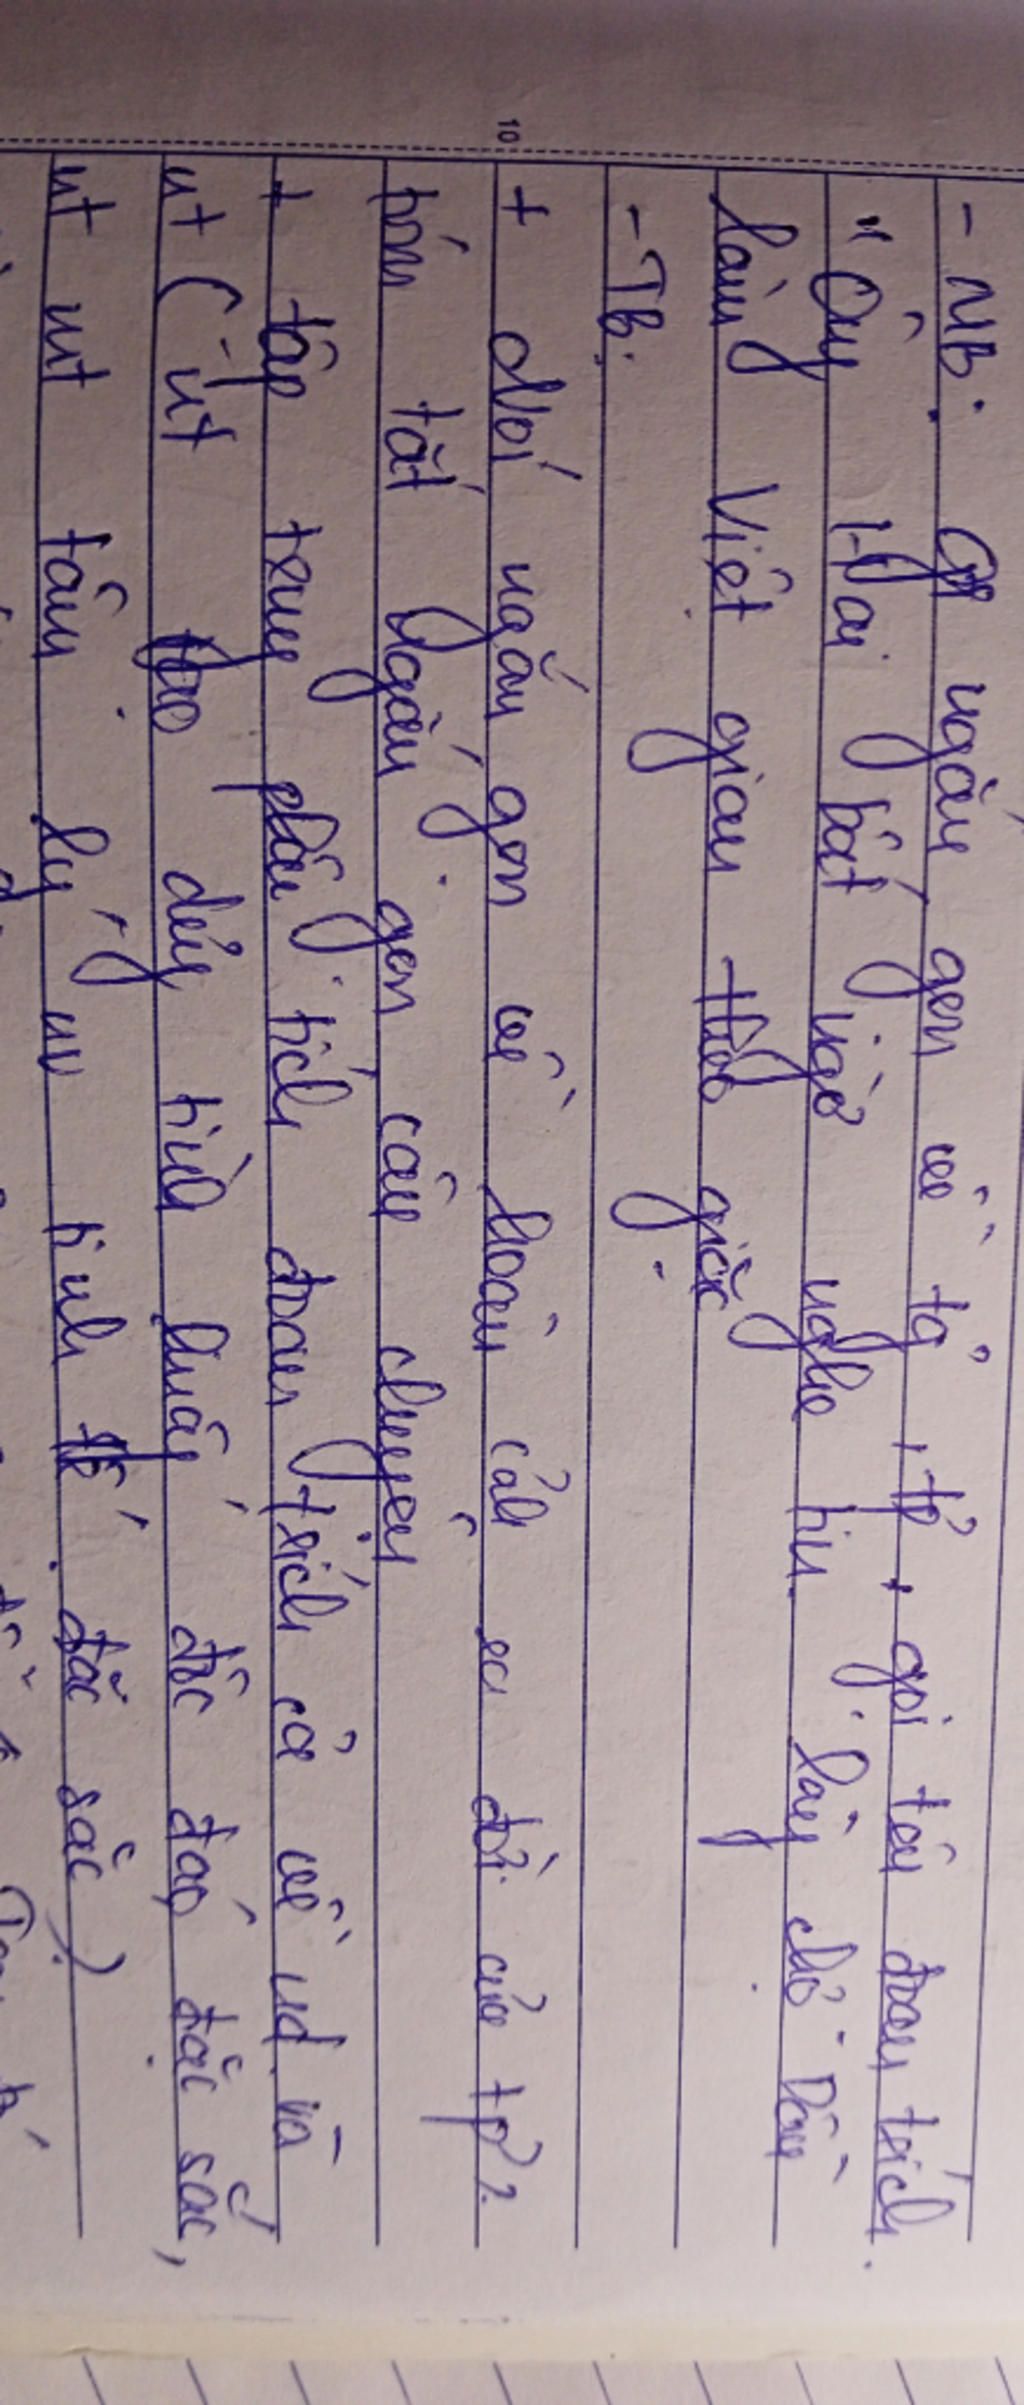 - MB: Gt ngắn gọn về tg, tp, gọi tên đoạn trích.
"Ông Hai bất ngờ nghe tin làng chợ Dầu
làng Việt gian theo giặc
- TB:
+ Nói ngắn gọn về hoàn cảnh ra đời của tp?
tóm tắt ngắn gọn câu chuyện
+ tập trung phân tích đoạn trích cả về nd và
nt (nt xây dựng tình huống độc đáo đặc sắc,
nt mt tâm lý nv tinh tế. đặc sắc)
10